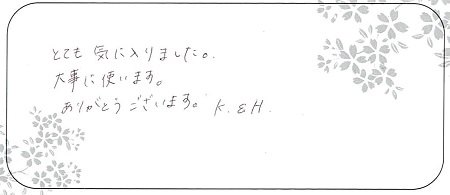 とても 気に入りました。
大事に使います。
ありがとうございます。 K. & H.